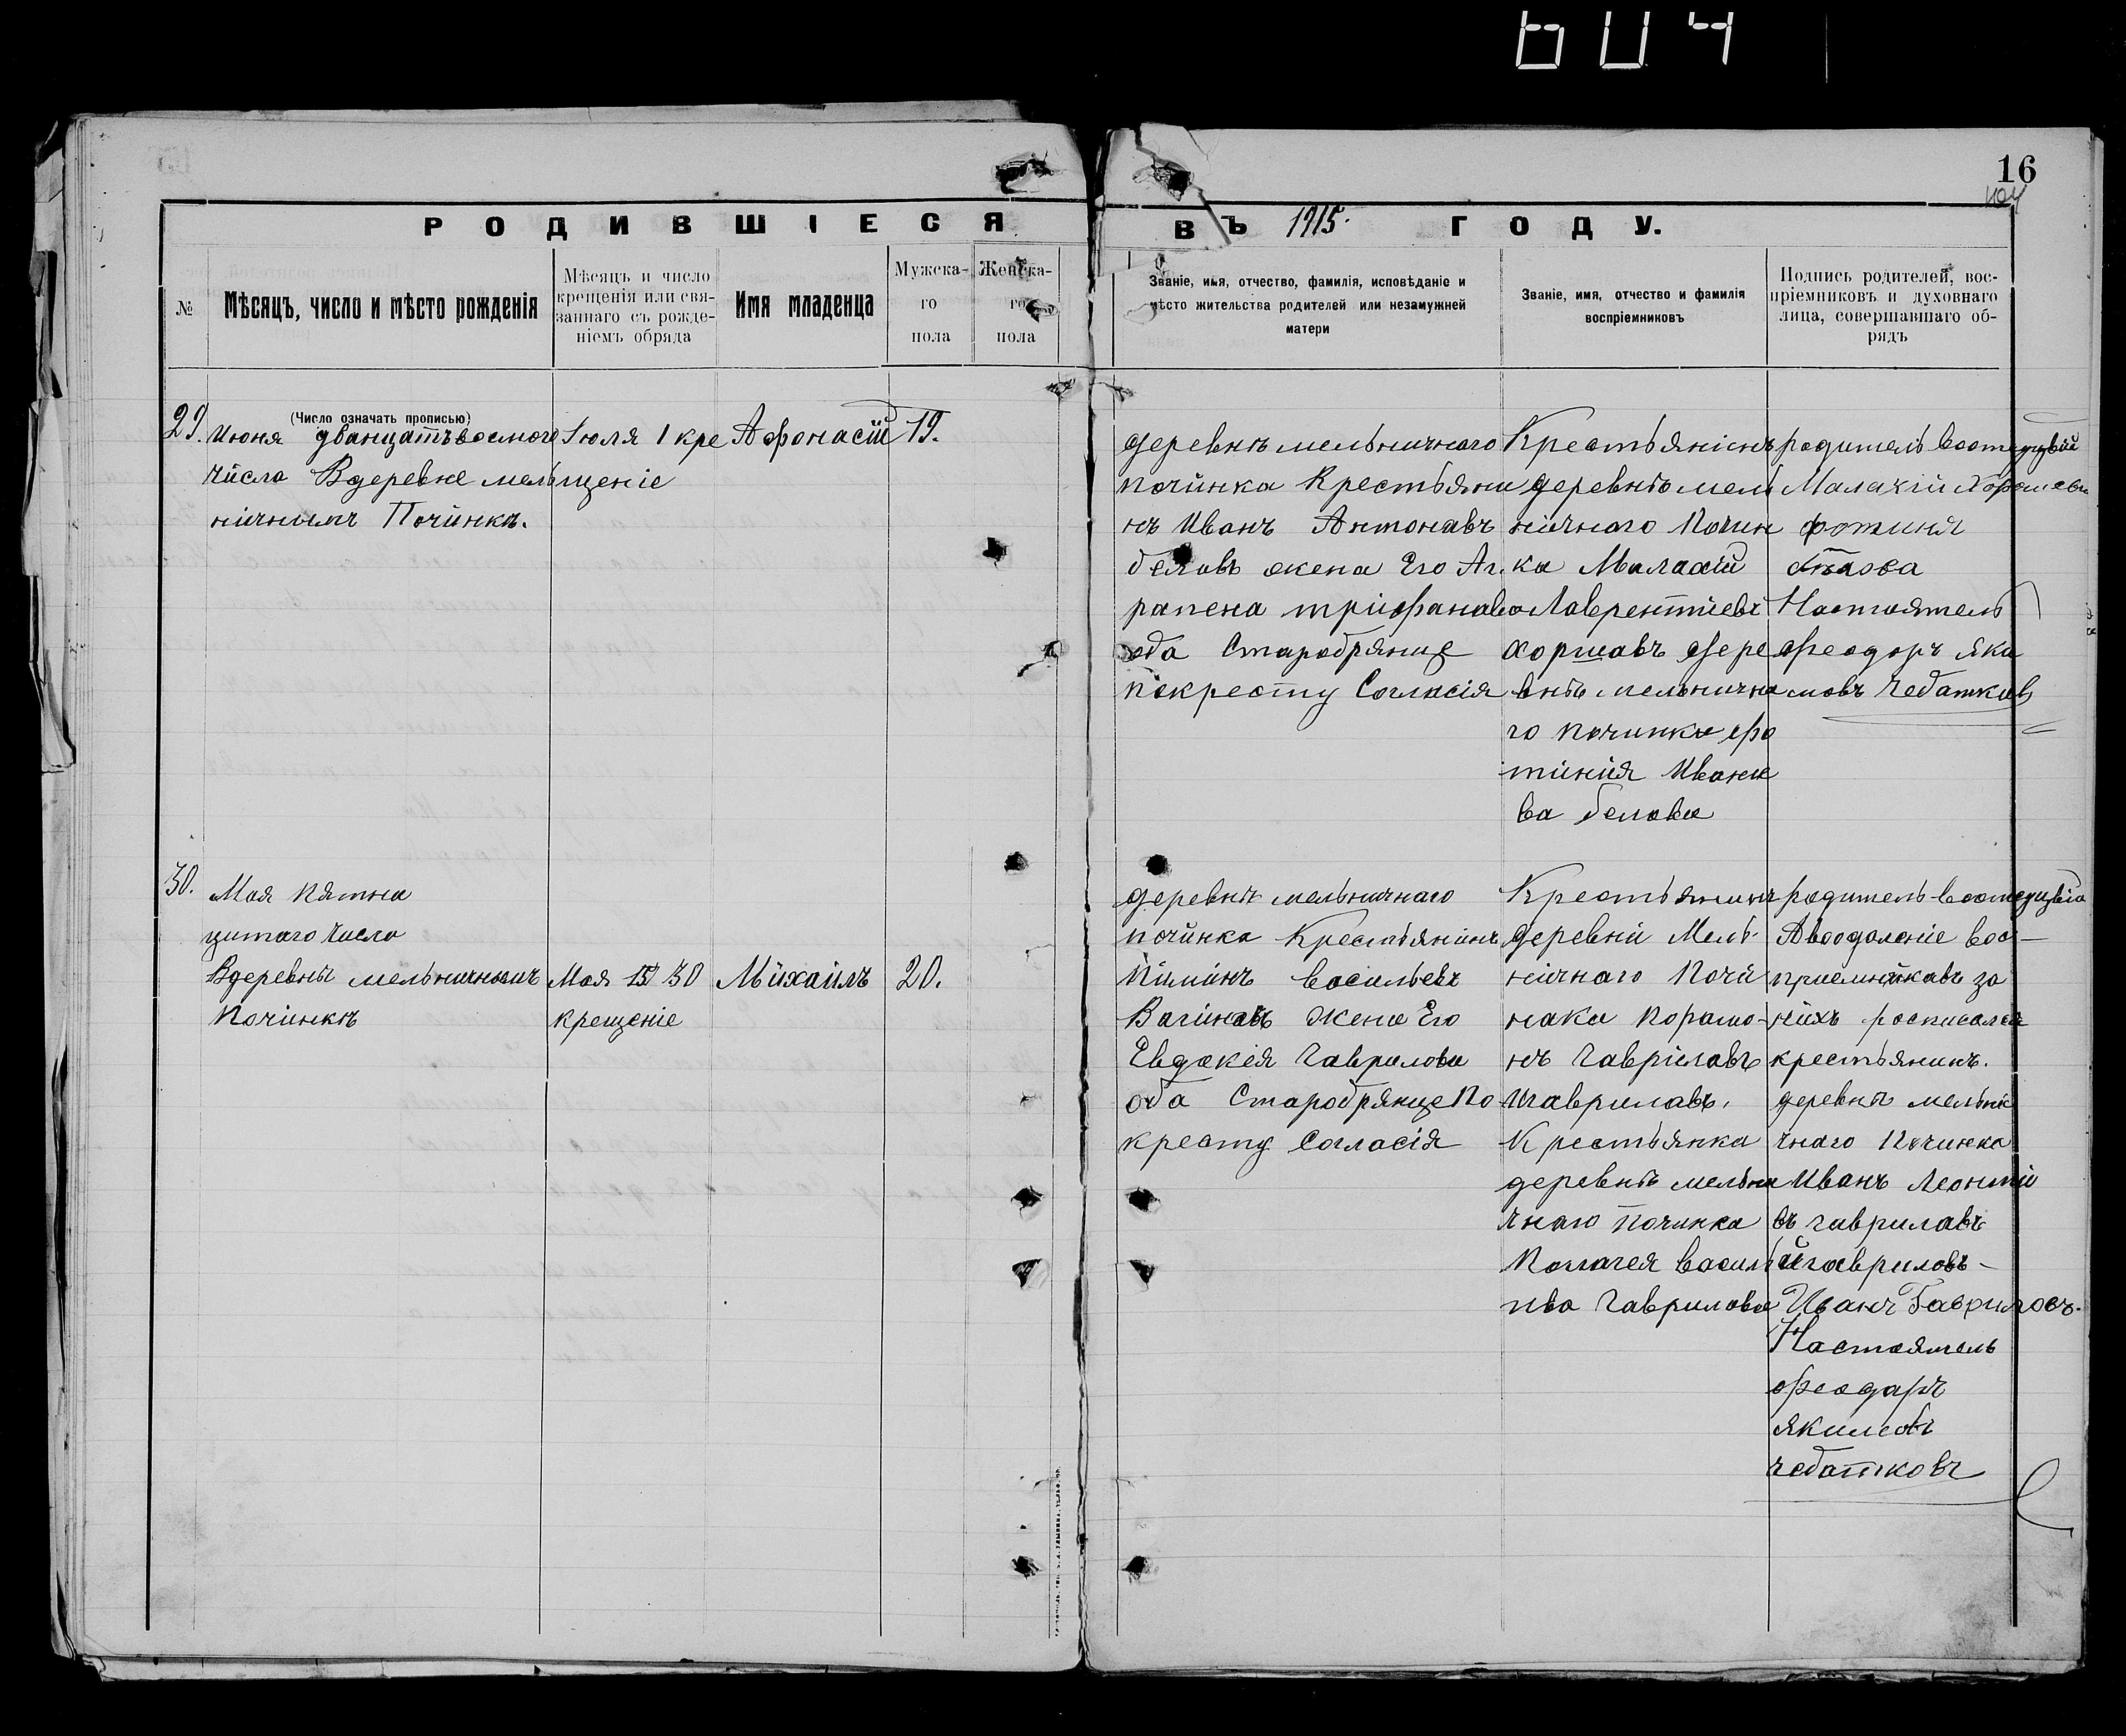 604
16
104
РОДИВШІЕСЯ
ВЪ 1915. ГОДУ.
№
Мѣсяцъ, число и мѣсто рожденія
Мѣсяцъ и число
крещенія или свя-
заннаго съ рожде-
ніемъ обряда
Имя младенца
Мужска-
го
пола
Женска-
го
пола
Званіе, имя, отчество, фамилія, исповѣданіе и
мѣсто жительства родителей или незамужней
матери
Званіе, имя, отчество и фамилія
воспріемниковъ
Подпись родителей, вос-
пріемниковъ и духовнаго
лица, совершавшаго об-
рядъ
(Число означать прописью)
29.
Июня дванцатъвосмого
числа Вдеревне мель
нічнымъ Починкъ.
Іюля 1 кре
щеніе
Афонасій
19.
деревнѣ мельничнаго
починка Крестьяни
нъ Иванъ Антонавъ
беловъ жена Его Аг
рапена тріфанава
оба Старобрянце
покресту Согласія
Крестьянінъ
деревнѣ мель
нічнаго Почин
ка Малахій
Лаврентіевъ
хоршавъ дере
внѣ мельнична
го починка фо
тинія Ивана
ва белова
родитель
Малахій
фотинія
Настоятель
Феодоръ Яки
мовъ Чебатков
30.
Мая пятна
цатаго числа
Вдеревнѣ мельничнымъ
Починкъ
Мая 15 30
крещеніе
Міхаилъ
20.
деревнѣ мельничнаго
починка Крестьянинъ
Піминъ васильевъ
Вагинавъ жена Его
Евдокея Гаврилова
оба Старобрянце По
кресту Согласія
Крестьянинъ
деревни Мель-
нічнаго Почи
нака
нъ Гаврілавъ
Игаврилавъ.
Крестьянка
деревнѣ мельни
чнаго починка
Палагея василь
ива Гаврилова
родитель
вос-
приемникавъ за
нихъ росписался
крестьянинъ.
деревнѣ мельни
чнаго Починка
Иванъ Леонтіе
въ гаврилавъ
йгавриловъ-
Иванъ Гавриловъ.
Настоятель
феодаръ
Якимовъ
чебатковъ